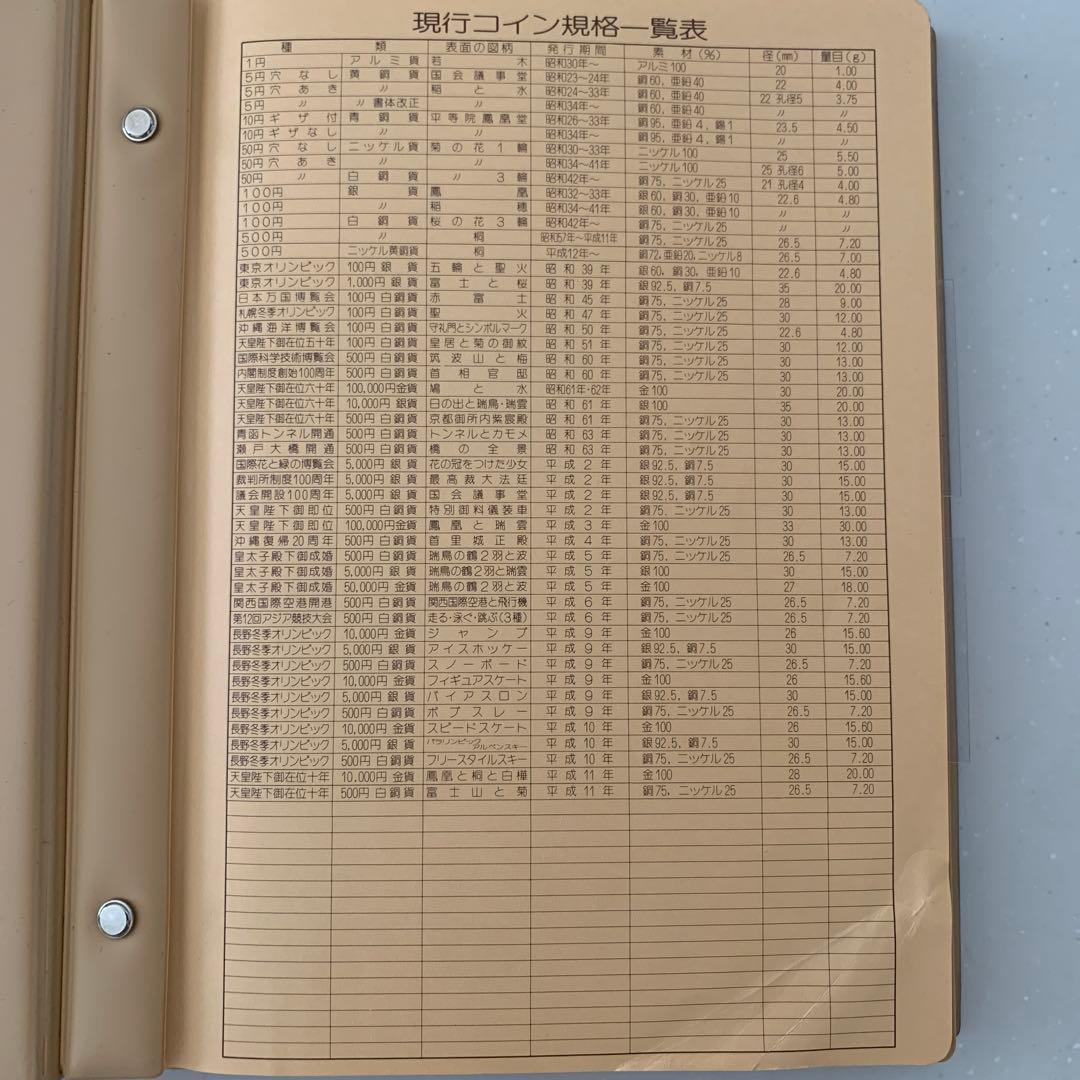 現行コイン規格一覧表
種類 表面の図柄 発行期間 素材(%) 径(mm) 量目(g)
1円 アルミ貨 若木 昭和30年~ アルミ100 20 1.00
5円穴なし 黄銅貨 国会議事堂 昭和23~24年 銅60, 亜鉛40 22 4.00
5円穴あき 〃 稲と水 昭和24~33年 銅60, 亜鉛40 22 孔径5 3.75
5円 〃 〃書体改正 〃 昭和34年~ 銅60, 亜鉛40 〃 〃
10円ギザ付 青銅貨 平等院鳳凰堂 昭和26~33年 銅95, 亜鉛4, 錫1 23.5 4.50
10円ギザなし 〃 〃 昭和34年~ 銅95, 亜鉛4, 錫1 〃 〃
50円穴なし ニッケル貨 菊の花1輪 昭和30~33年 ニッケル100 25 5.50
50円穴あき 〃 〃 昭和34~41年 ニッケル100 25 孔径6 5.00
50円 〃 白銅貨 〃 3輪 昭和42年~ 銅75, ニッケル25 21 孔径4 4.00
100円 銀貨 鳳凰 昭和32~33年 銀60, 銅30, 亜鉛10 22.6 4.80
100円 〃 稲穂 昭和34~41年 銀60, 銅30, 亜鉛10 〃 〃
100円 白銅貨 桜の花3輪 昭和42年~ 銅75, ニッケル25 〃 〃
500円 〃 桐 昭和57年~平成11年 銅75, ニッケル25 26.5 7.20
500円 ニッケル黄銅貨 桐 平成12年~ 銅72, 亜鉛20, ニッケル8 26.5 7.00
東京オリンピック 100円銀貨 五輪と聖火 昭和39年 銀60, 銅30, 亜鉛10 22.6 4.80
東京オリンピック 1,000円銀貨 富士と桜 昭和39年 銀92.5, 銅7.5 35 20.00
日本万国博覧会 100円白銅貨 赤富士 昭和45年 銅75, ニッケル25 28 9.00
札幌冬季オリンピック 100円白銅貨 聖火 昭和47年 銅75, ニッケル25 30 12.00
沖縄海洋博覧会 100円白銅貨 守礼門とシンボルマーク 昭和50年 銅75, ニッケル25 22.6 4.80
天皇陛下御在位五十年 100円白銅貨 皇居と菊の御紋 昭和51年 銅75, ニッケル25 30 12.00
国際科学技術博覧会 500円白銅貨 筑波山と梅 昭和60年 銅75, ニッケル25 30 13.00
内閣制度創始100周年 500円白銅貨 首相官邸 昭和60年 銅75, ニッケル25 30 13.00
天皇陛下御在位六十年 100,000円金貨 鳩と水 昭和61年・62年 金100 30 20.00
天皇陛下御在位六十年 10,000円銀貨 日の出と瑞鳥・瑞雲 昭和61年 銀100 35 20.00
天皇陛下御在位六十年 500円白銅貨 京都御所内紫宸殿 昭和61年 銅75, ニッケル25 30 13.00
青函トンネル開通 500円白銅貨 トンネルとカモメ 昭和63年 銅75, ニッケル25 30 13.00
瀬戸大橋開通 500円白銅貨 橋の全景 昭和63年 銅75, ニッケル25 30 13.00
国際花と緑の博覧会 5,000円銀貨 花の冠をつけた少女 平成2年 銀92.5, 銅7.5 30 15.00
裁判所制度100周年 5,000円銀貨 最高裁大法廷 平成2年 銀92.5, 銅7.5 30 15.00
議会開設100周年 5,000円銀貨 国会議事堂 平成2年 銀92.5, 銅7.5 30 15.00
天皇陛下御即位 500円白銅貨 特別御料儀装車 平成2年 銅75, ニッケル25 30 13.00
天皇陛下御即位 100,000円金貨 鳳凰と瑞雲 平成3年 金100 33 30.00
沖縄復帰20周年 500円白銅貨 首里城正殿 平成4年 銅75, ニッケル25 30 13.00
皇太子殿下御成婚 500円白銅貨 瑞鳥の鶴2羽と波 平成5年 銅75, ニッケル25 26.5 7.20
皇太子殿下御成婚 5,000円銀貨 瑞鳥の鶴2羽と瑞雲 平成5年 銀100 30 15.00
皇太子殿下御成婚 50,000円金貨 瑞鳥の鶴2羽と波 平成5年 金100 27 18.00
関西国際空港開港 500円白銅貨 関西国際空港と飛行機 平成6年 銅75, ニッケル25 26.5 7.20
第12回アジア競技大会 500円白銅貨 走る・泳ぐ・跳ぶ(3種) 平成6年 銅75, ニッケル25 26.5 7.20
長野冬季オリンピック 10,000円金貨 ジャンプ 平成9年 金100 26 15.60
長野冬季オリンピック 5,000円銀貨 アイスホッケー 平成9年 銀92.5, 銅7.5 30 15.00
長野冬季オリンピック 500円白銅貨 スノーボード 平成9年 銅75, ニッケル25 26.5 7.20
長野冬季オリンピック 10,000円金貨 フィギュアスケート 平成9年 金100 26 15.60
長野冬季オリンピック 5,000円銀貨 バイアスロン 平成9年 銀92.5, 銅7.5 30 15.00
長野冬季オリンピック 500円白銅貨 ボブスレー 平成9年 銅75, ニッケル25 26.5 7.20
長野冬季オリンピック 10,000円金貨 スピードスケート 平成10年 金100 26 15.60
長野冬季オリンピック 5,000円銀貨 パラリンピックアルペンスキー 平成10年 銀92.5, 銅7.5 30 15.00
長野冬季オリンピック 500円白銅貨 フリースタイルスキー 平成10年 銅75, ニッケル25 26.5 7.20
天皇陛下御在位十年 10,000円金貨 鳳凰と桐と白樺 平成11年 金100 28 20.00
天皇陛下御在位十年 500円白銅貨 富士山と菊 平成11年 銅75, ニッケル25 26.5 7.20